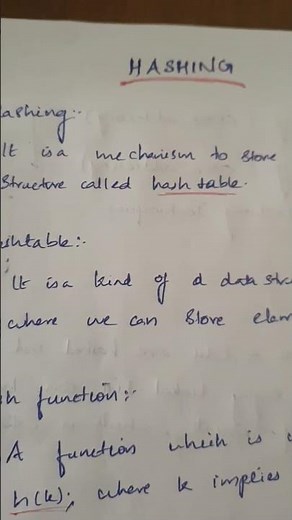 HASHING
ashing:-
It is a mechanism to store
Structure called hash table.
ashtable:-
It is a kind of a data struc
where we can store elem
sh function:-
A function which is u
h(k); where k implies